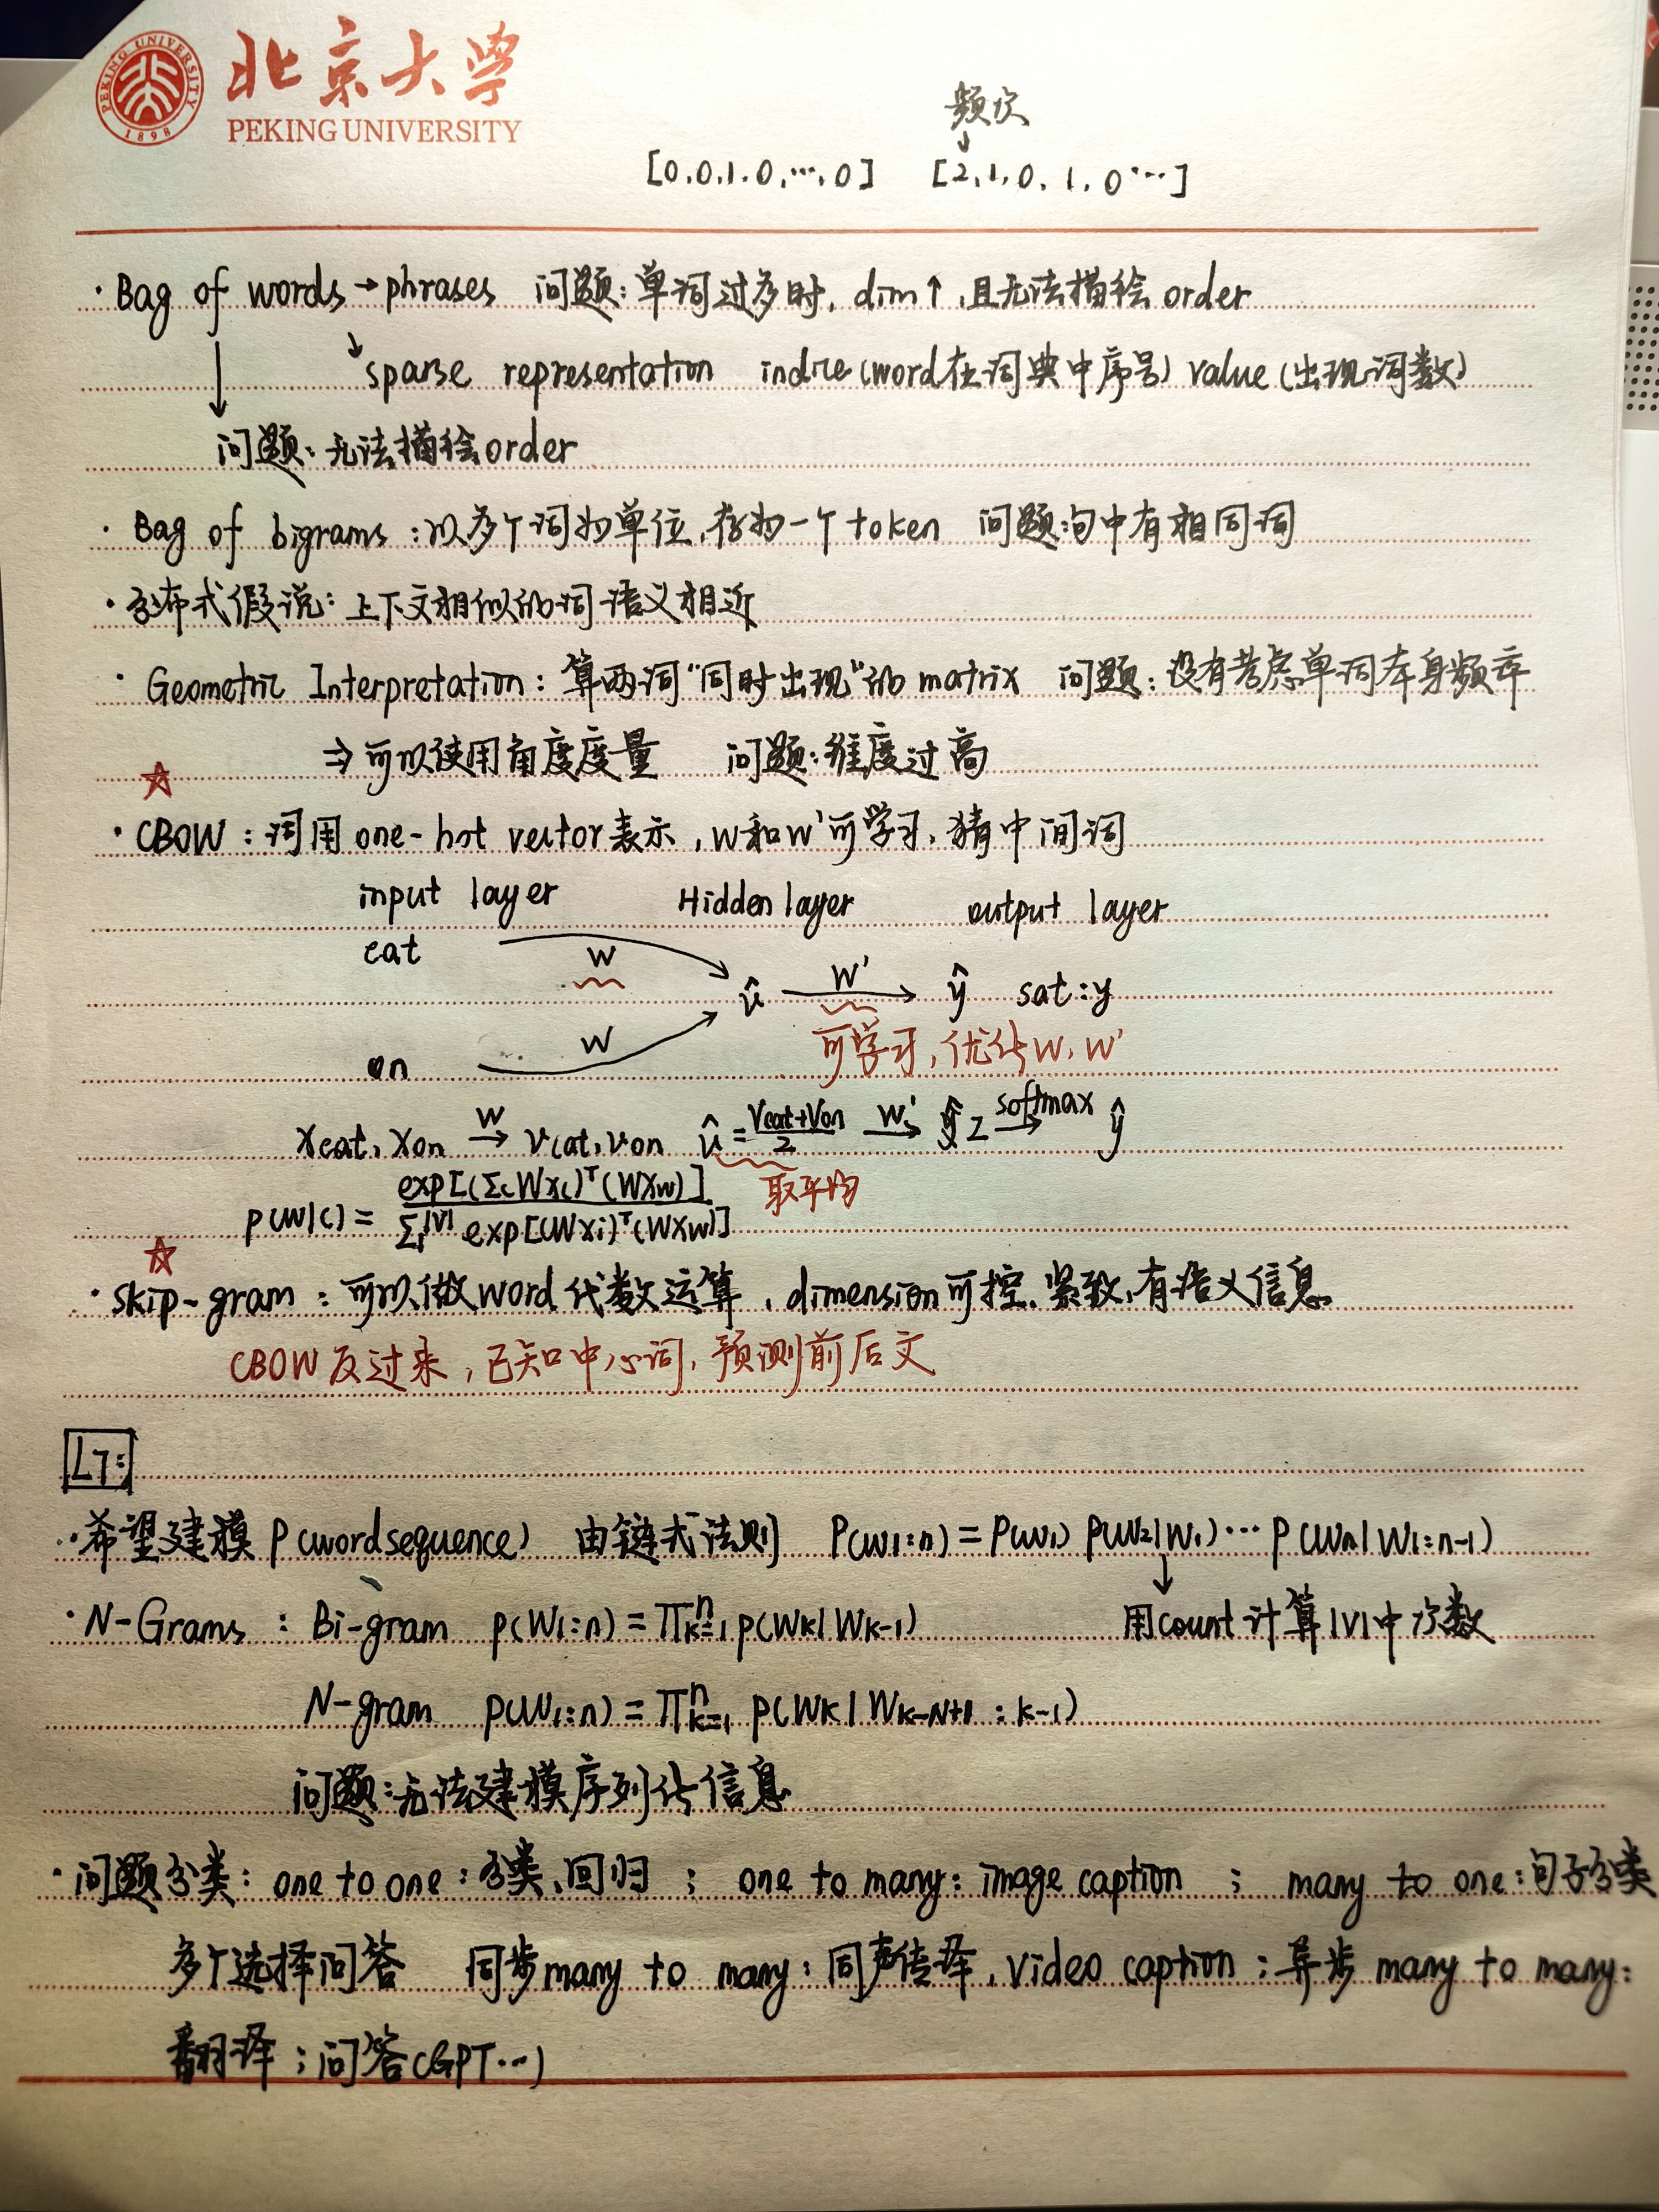 PEKING UNIVERSITY
1898
北京大学
PEKING UNIVERSITY
频次
↓
[0,0,1,0,…,0] [2,1,0,1,0…]
· Bag of words → phrases 问题:单词过多时, dim↑,且无法描绘order
sparse representation indice(word在词典中序号) value(出现词数)
问题:无法描绘order
· Bag of bigrams:以多个词为单位,存为一个token 问题:句中有相同词
· 分布式假说:上下文相似的词语义相近
· Geometric Interpretation:算两词“同时出现”的matrix 问题:没有考虑单词本身频率
⇒可以使用角度度量 问题:维度过高
☆
· CBOW:词用one-hot vector表示,W和W'可学习,猜中间词
input layer Hidden layer output layer
cat W
û W' ŷ sat:y
W 可学习,优化W,W'
on
xcat, xon W→ vcat, von û = (Vcat+Von)/2 W'→ z softmax→ ŷ
取平均
p(w|c) = exp[(ΣcWxc)ᵀ(WXw)] / Σ₁^|V| exp[(Wxi)ᵀ(WXw)]
☆
· skip-gram:可以做word代数运算,dimension可控,紧致,有语义信息
CBOW反过来,已知中心词,预测前后文
L7:
· 希望建模P(word sequence) 由链式法则 P(w1:n)=P(w1) P(w2|w1)…P(wn|w1:n-1)
· N-Grams:Bi-gram p(w1:n)=∏ⁿk=1 p(wk|wk-1) 用count计算|V|中次数
N-gram p(w1:n)=∏ⁿk=1 p(wk|wk-N+1:k-1)
问题:无法建模序列化信息
· 问题分类:one to one:分类、回归; one to many:image caption; many to one:句子分类
多个选择问答 同步many to many:同声传译,video caption;异步many to many:
翻译;问答(GPT…)